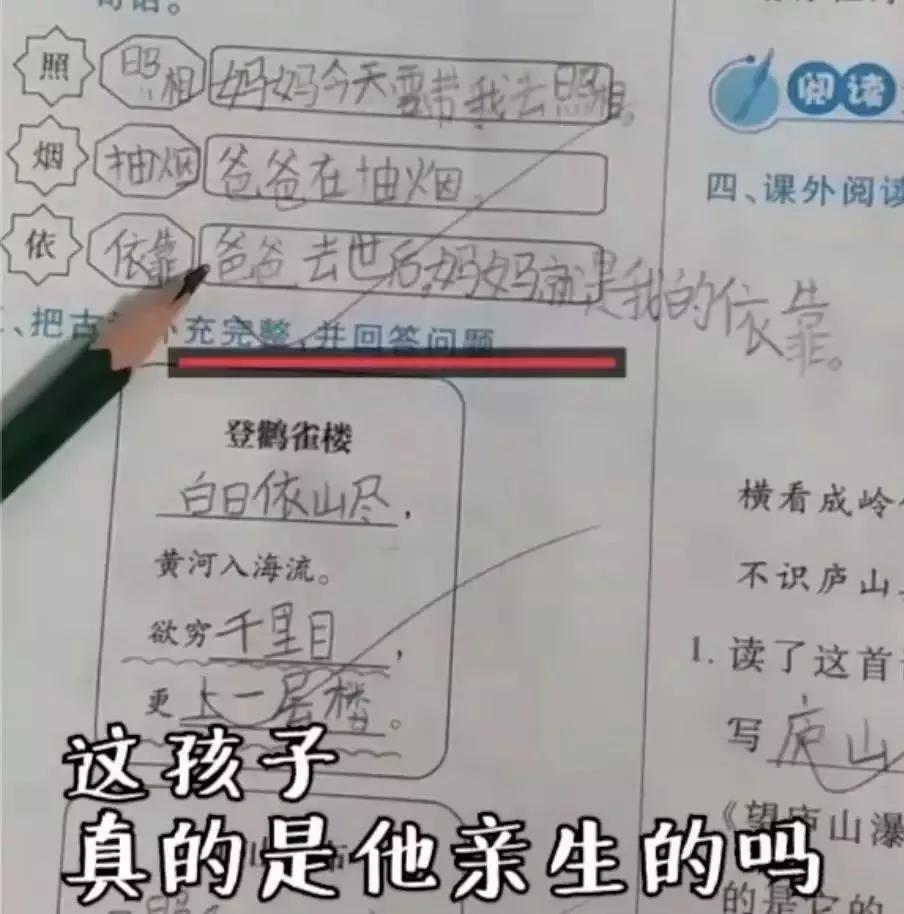 照 照相 妈妈今天要带我去照相。
烟 抽烟 爸爸在抽烟。
依 依靠 爸爸去世后,妈妈就是我的依靠。
、把古 补充完整,并回答问题
登鹳雀楼
白日依山尽,
黄河入海流。
欲穷千里目,
更上一层楼。
阅读
四、课外阅读
横看成岭
不识庐山
1. 读了这首
写庐山
《望庐山瀑
的是它的
这孩子
真的是他亲生的吗